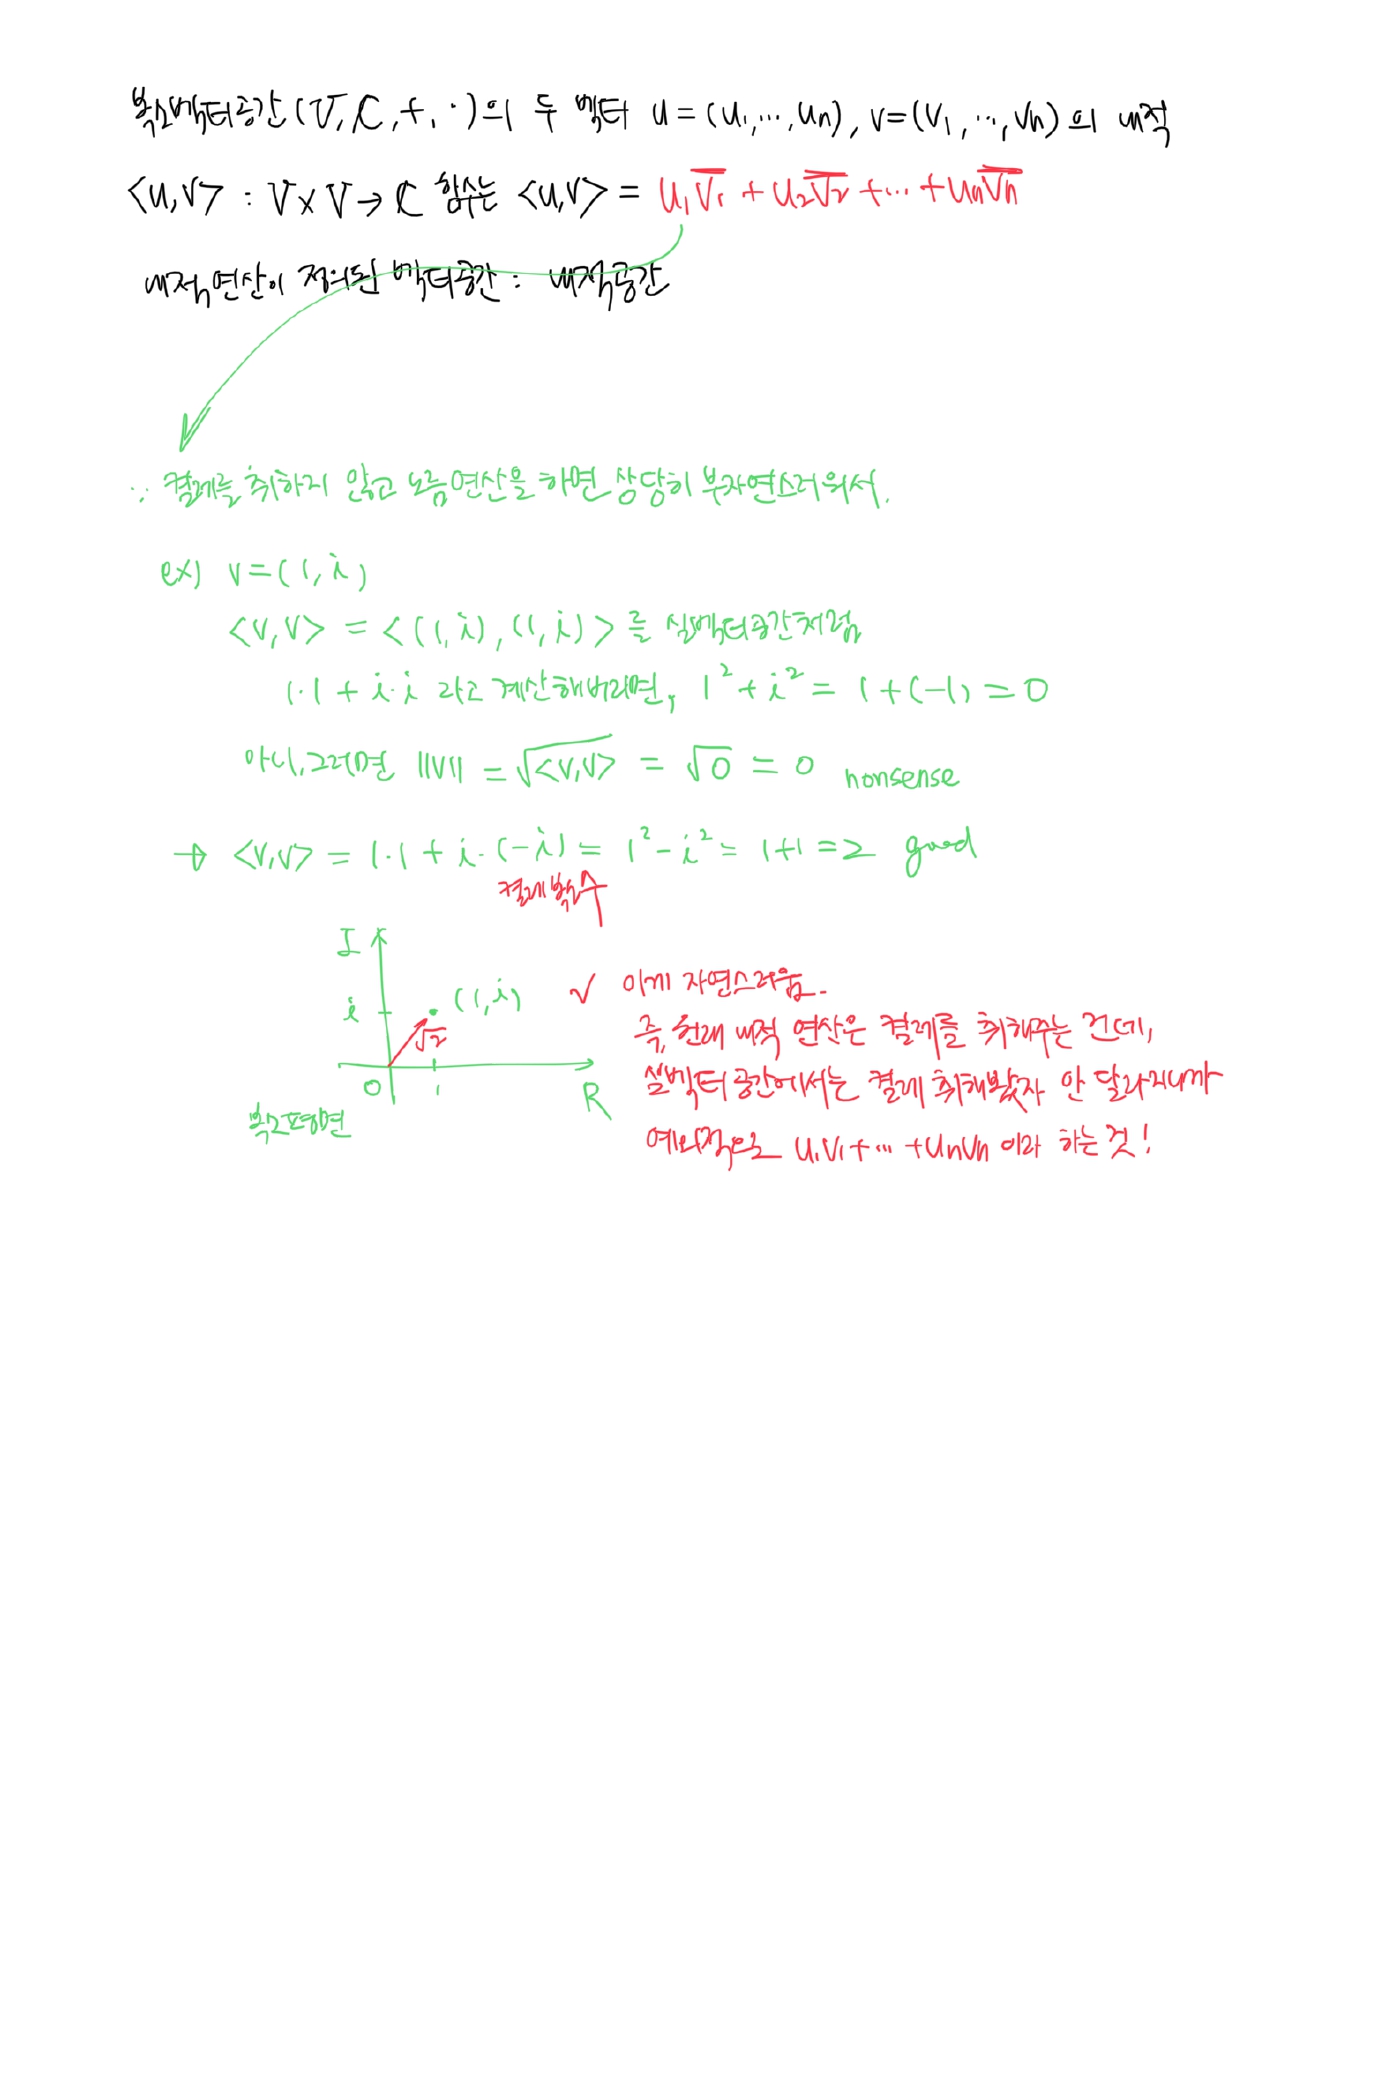 복소벡터공간(V, ℂ, +, ·)의 두 벡터 u = (u₁, ⋯, uₙ), v=(v₁, ⋯, vₙ)의 내적
<u,v> : V×V→ℂ 함수는 <u,v> = u₁v̅₁ + u₂v̅₂ + ⋯ + uₙv̅ₙ
내적연산이 정의된 벡터공간 : 내적공간
∵ 켤레를 취하지 않고 노름연산을 하면 상당히 부자연스러워서.
ex) v = (1, i)
<v,v> = <(1,i), (1,i)>를 실벡터공간처럼
1·1 + i·i 라고 계산해버리면, 1² + i² = 1+(-1) = 0
아니, 그러면 ||v|| = √<v,v> = √0 = 0 nonsense
→ <v,v> = 1·1 + i·(-i) = 1² - i² = 1+1 = 2 good
켤레복소수
I
i
(1,i)
√2
0
1
R
복소평면
✓ 이게 자연스러움.
즉, 원래 내적 연산은 켤레를 취해주는 건데,
실벡터공간에서는 켤레 취해봤자 안 달라지니까
예외적으로 u₁v₁+ ⋯ +uₙvₙ 이라 하는 것!